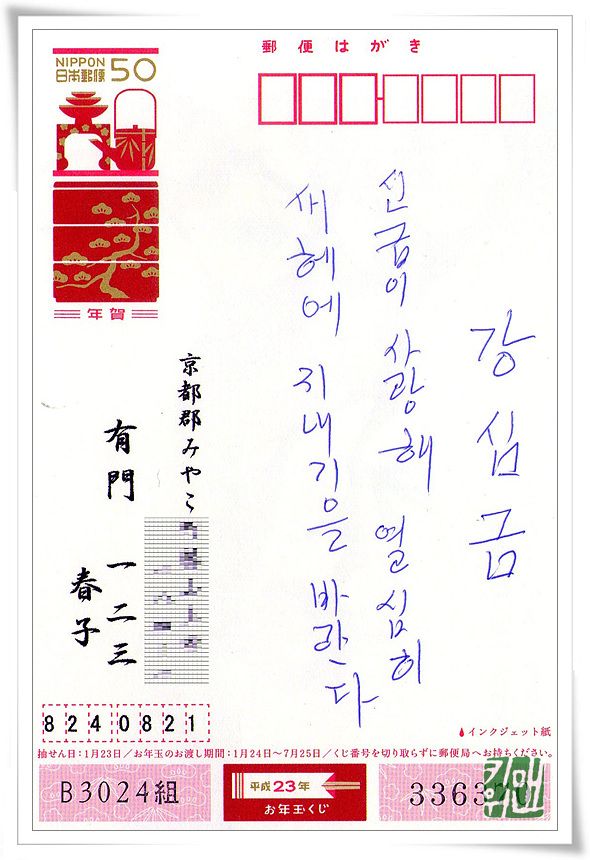 NIPPON
日本郵便 50
郵便はがき
年賀
강심금
선굽이 사랑해 열심히
새헤에 지내기을 바란다
京都郡みやこ
有門 一二三
春子
8240821
インクジェット紙
抽せん日：1月23日／お年玉のお渡し期間：1月24日〜7月25日／くじ番号を切り取らずに郵便局へお持ちください。
B3024組
平成23年
お年玉くじ
3363